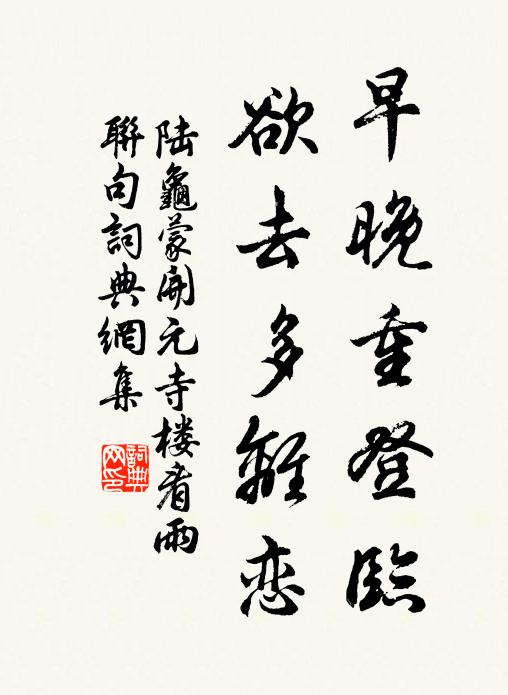 早晚重登臨
欲去多離恋
陆龜蒙開元寺楼看雨
聯句詞典網集
詞典网印